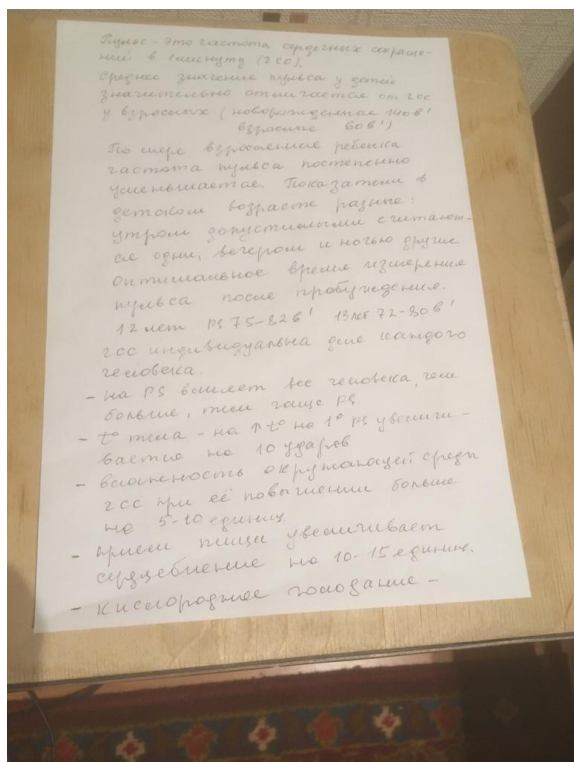 Пульс - это частота сердечных сокраще-
ний в минуту (ЧСС).
Среднее значение пульса у детей
значительно отличается от ЧСС
у взрослых (новорожденные 140 в'
взрослые 60 в')
По мере взросления ребенка
частота пульса постепенно
уменьшается. Показатели в
детском возрасте разные:
утром допустимыми считают-
ся одни, вечером и ночью другие
Оптимальное время измерения
пульса после пробуждения.
12 лет PS 75-82 в' 13 лет 72-80 в'
ЧСС индивидуальна для каждого
человека.
- на PS влияет вес человека, чем
больше, тем чаще PS
- t° тела - на ↑ t° на 1° PS увеличи-
вается на 10 ударов
- влажность окружающей среды
ЧСС при её повышении больше
на 5-10 единиц.
- прием пищи увеличивает
сердцебиение на 10-15 единиц.
- кислородное голодание -